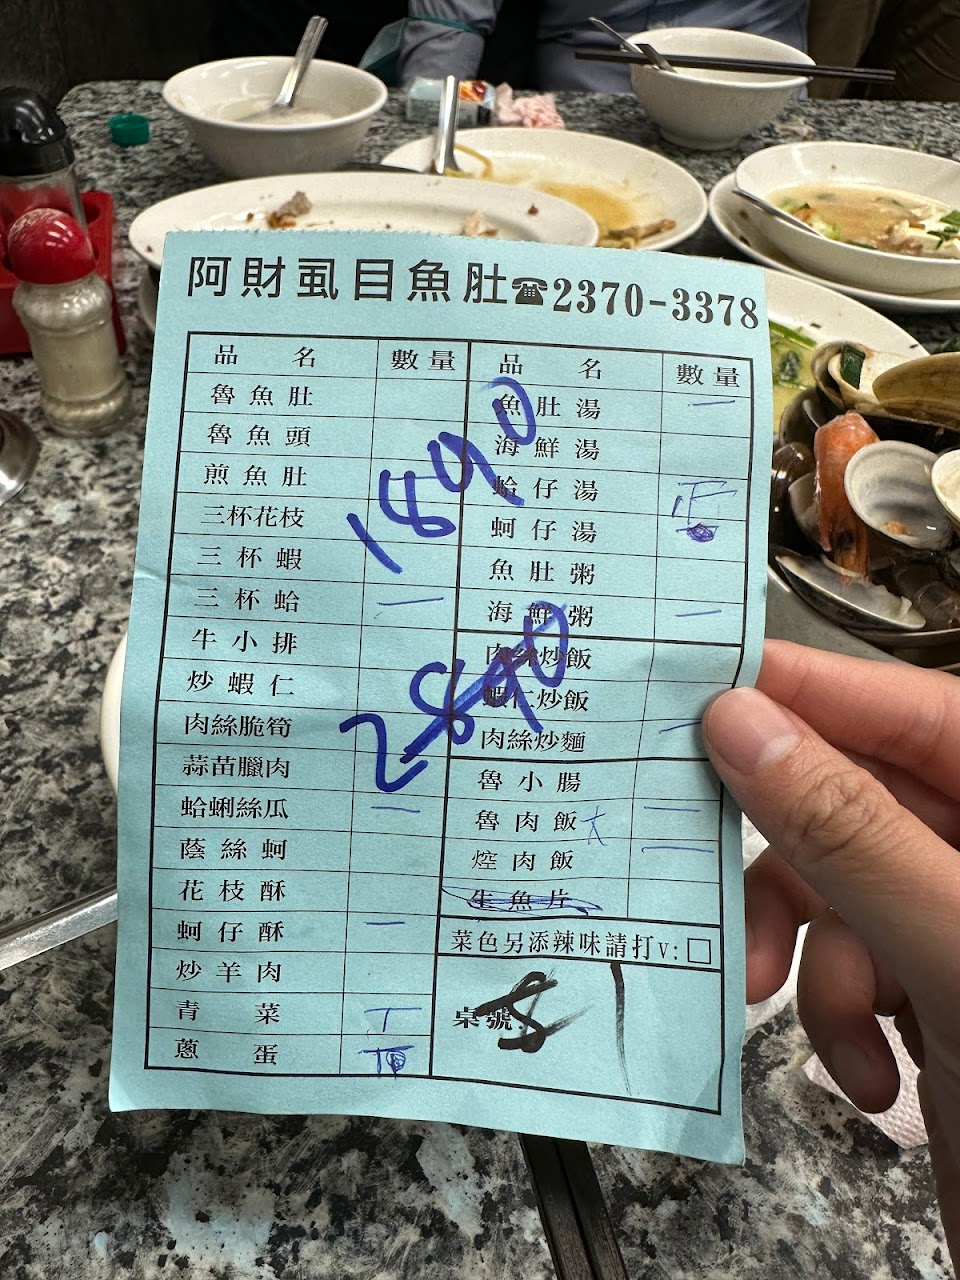 阿財虱目魚肚☎2370-3378
品名 數量
魯魚肚
魯魚頭
煎魚肚
三杯花枝
三杯蝦
三杯蛤 一
牛小排
炒蝦仁
肉絲脆筍
蒜苗臘肉
蛤蜊絲瓜 一
蔭絲蚵
花枝酥
蚵仔酥 一
炒羊肉
青菜 丅
蔥蛋
品名 數量
魚肚湯 一
海鮮湯
蛤仔湯
蚵仔湯
魚肚粥
海鮮粥 一
肉絲炒飯
蝦仁炒飯
肉絲炒麵 一
魯小腸
魯肉飯 大 二
焢肉飯 一
生魚片
菜色另添辣味請打v:□
桌號: 8
1890